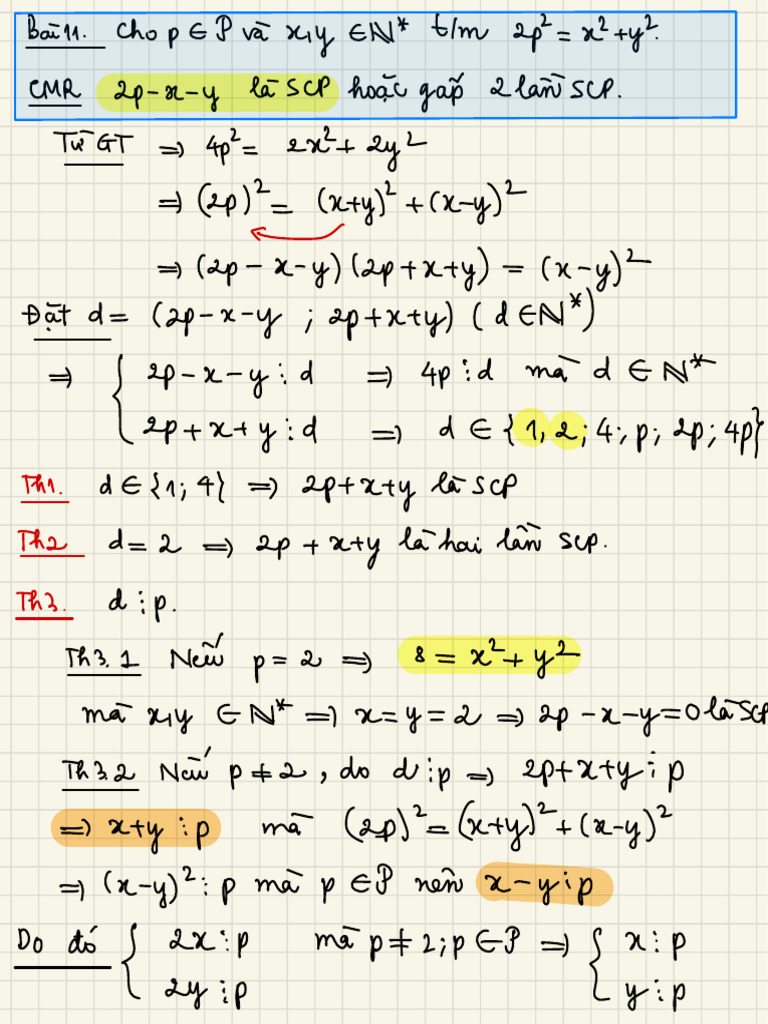 Bài 11. Cho p ∈ P và x,y ∈ ℕ* t/m 2p² = x² + y².
CMR 2p - x - y là SCP hoặc gấp 2 lần SCP.
Từ GT ⇒ 4p² = 2x² + 2y²
⇒ (2p)² = (x+y)² + (x-y)²
⇒ (2p - x - y)(2p + x + y) = (x - y)²
Đặt d = (2p - x - y ; 2p + x + y) (d ∈ ℕ*)
⇒ { 2p - x - y ⋮ d ⇒ 4p ⋮ d mà d ∈ ℕ*
2p + x + y ⋮ d ⇒ d ∈ {1, 2; 4; p; 2p; 4p}
Th1. d ∈ {1; 4} ⇒ 2p + x + y là SCP
Th2 d = 2 ⇒ 2p + x + y là hai lần SCP.
Th3. d ⋮ p.
Th3.1 Nếu p = 2 ⇒ 8 = x² + y²
mà x,y ∈ ℕ* ⇒ x = y = 2 ⇒ 2p - x - y = 0 là SCP
Th3.2 Nếu p ≠ 2, do d ⋮ p ⇒ 2p + x + y ⋮ p
⇒ x + y ⋮ p mà (2p)² = (x+y)² + (x-y)²
⇒ (x-y)² ⋮ p mà p ∈ P nên x - y ⋮ p
Do đó { 2x ⋮ p mà p ≠ 2; p ∈ P ⇒ { x ⋮ p
2y ⋮ p y ⋮ p